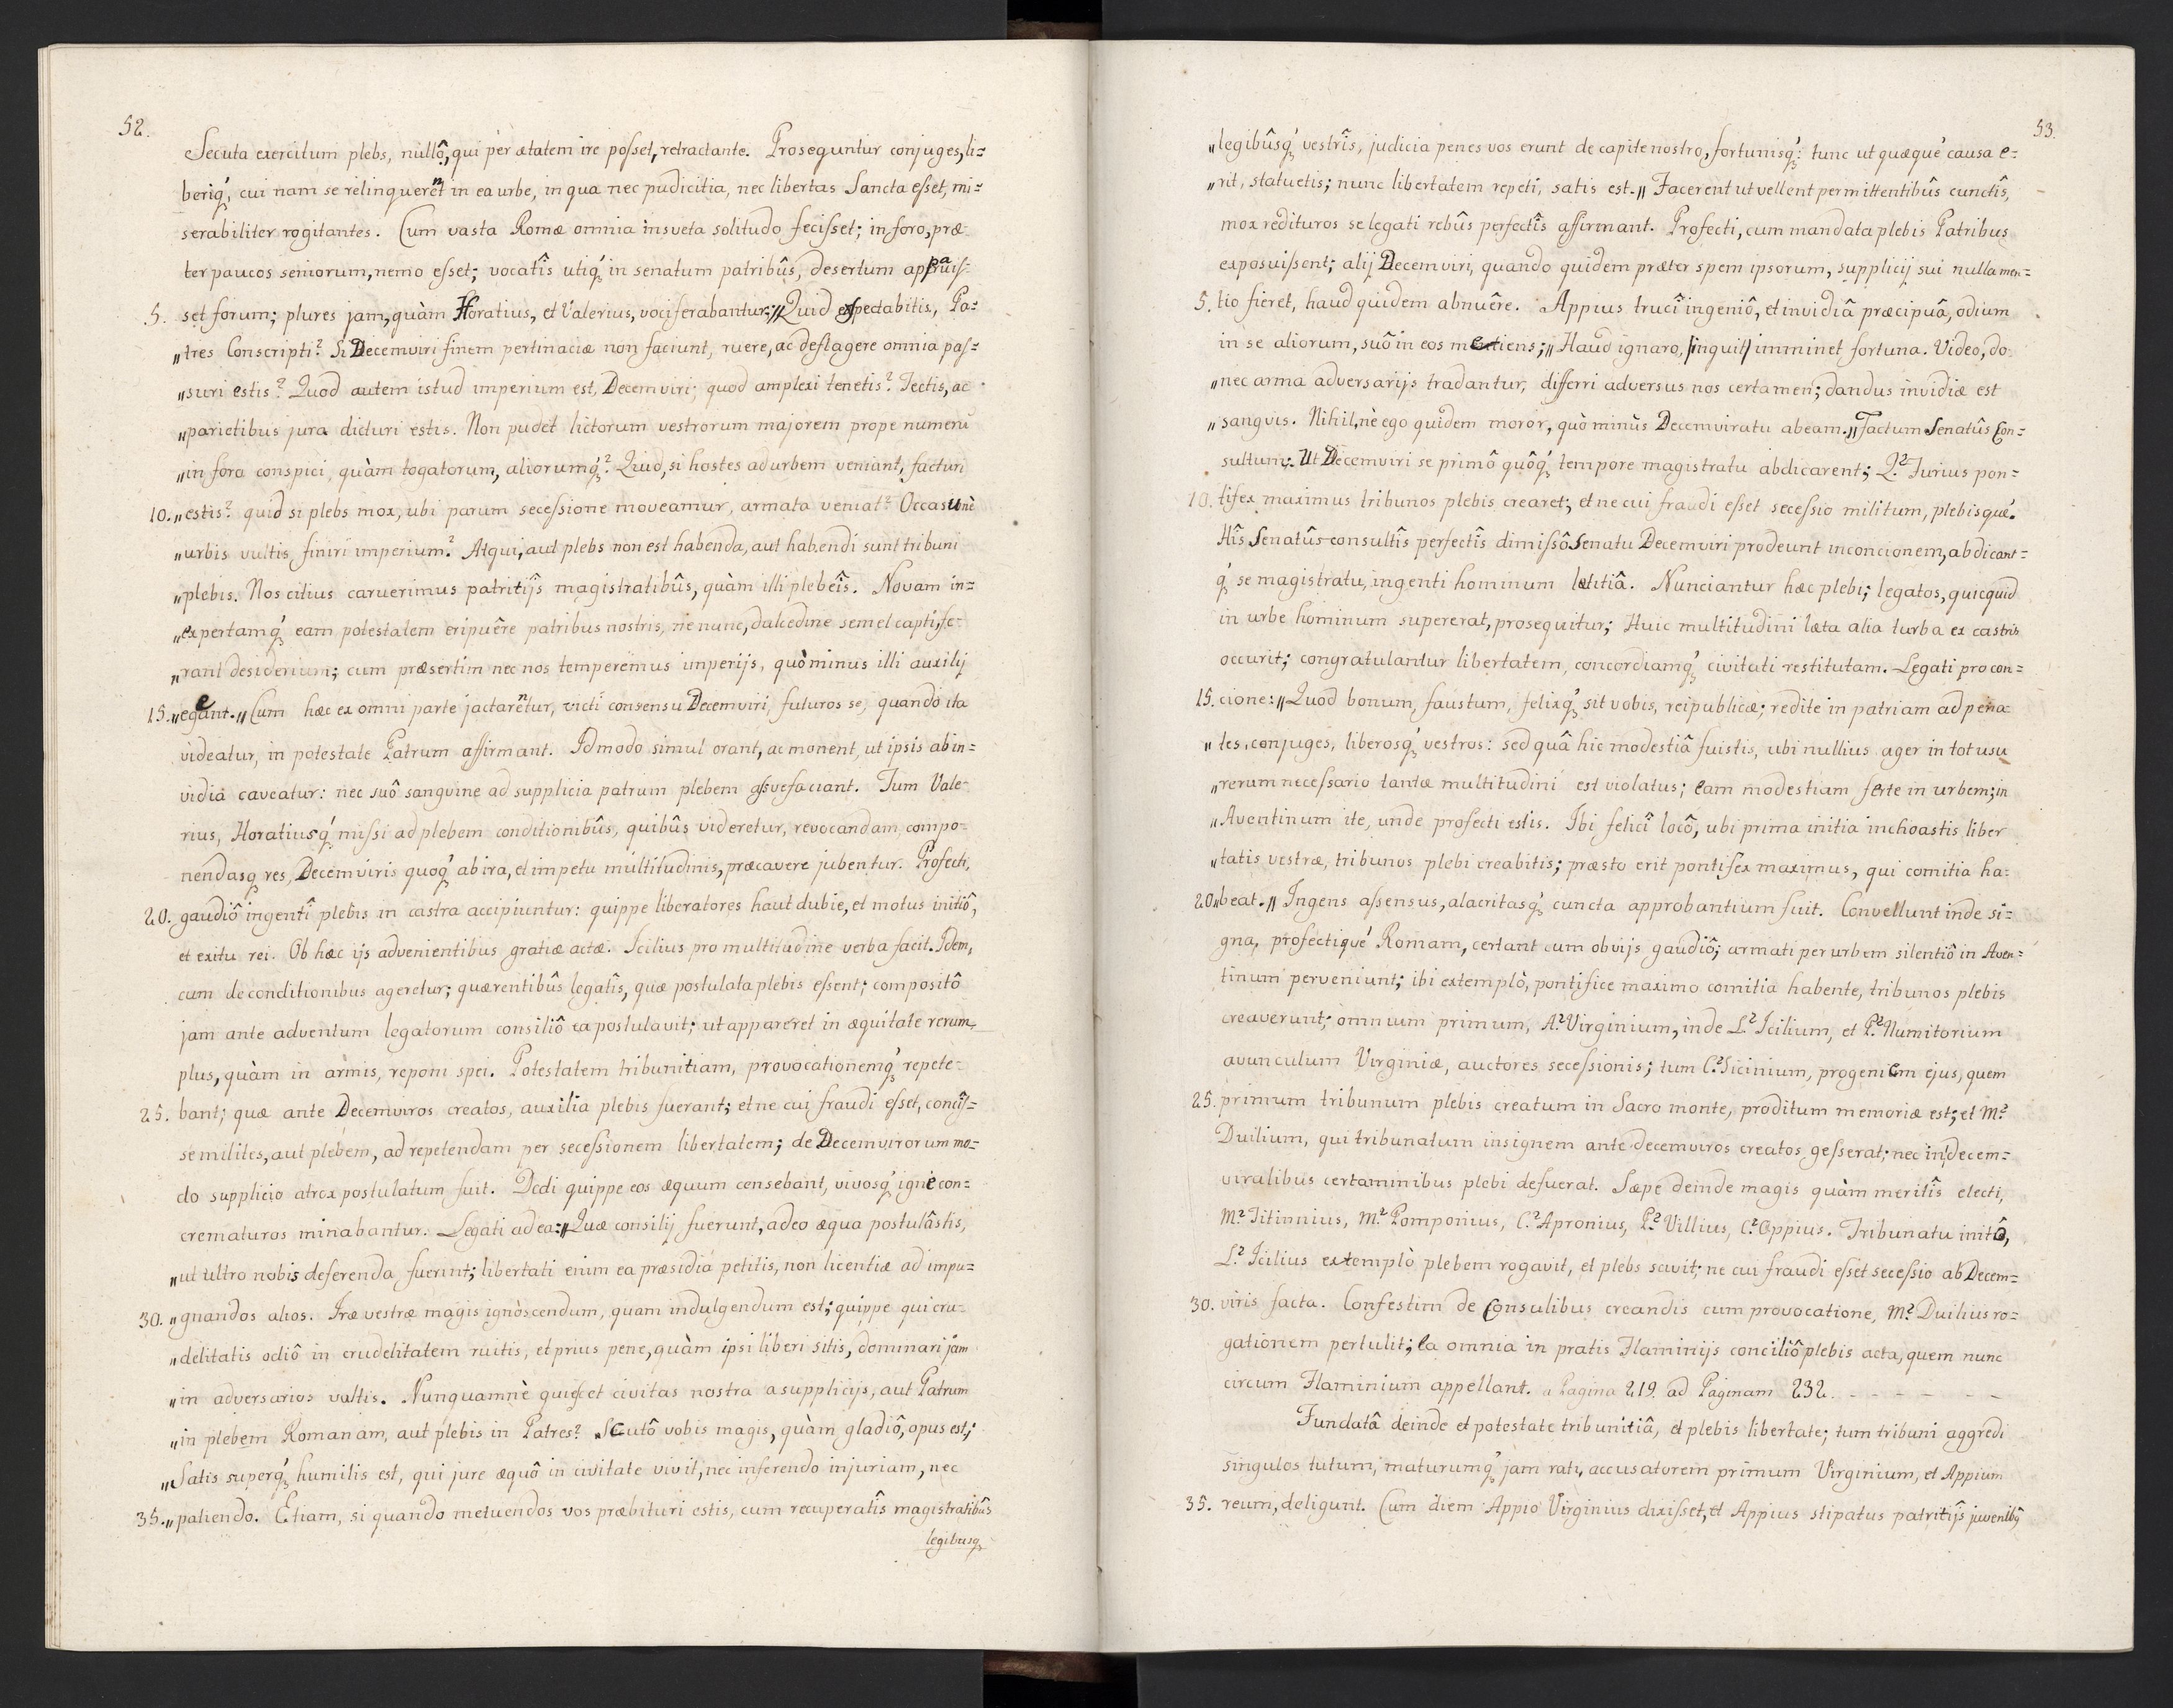 52.
Secuta exercitum plebs, nullô, qui per ætatem ire posset, retractante. Prosequntur conjuges, li=
beriq́ꝫ, cui nam se relinquerēnt in ea urbe, in qua nec pudicitia, nec libertas Sancta esset, mi=
serabiliter rogitantes. Cum vasta Romæ omnia insveta solitudo fecisset; in foro, præ-
ter paucos seniorum, nemo esset; vocatîs utiq́ꝫ in senatum patribûs, desertum apparuis-
5. set forum; plures jam, quàm Horatius, et Valerius, vociferabantur: „Quid exspectabitis, Pa=
„tres Conscripti? Si Decemviri finem pertinaciæ non faciunt, ruere, ac deflagere omnia pas=
„suri estis? Quod autem istud imperium est, Decemviri; quod amplexi tenetis? Tectis, ac
„parietibus jura dicturi estis. Non pudet lictorum vestrorum majorem prope numerū
„in foro conspici, quàm togatorum, aliorumq́ꝫ? Quid, si hostes ad urbem veniant, facturi
10. „estis? quid si plebs mox, ubi parum secessione moveamur, armata veniat? Occasunè
„urbis vultis finiri imperium? Atqui, aut plebs non est habenda, aut habendi sunt tribuni
„plebis. Nos citius caruerimus patritijs magistratibûs, quàm illi plebeîs. Novam in=
„expertamq́ꝫ eam potestatem eripuêre patribus nostris, ne nunc, dulcedine semel capti, fe-
„rant desiderium; cum præsertim nec nos temperemus imperijs, quò minus illi auxilij
15. „egeant.„ Cum hæc ex omni parte jactarentur, victi consensu Decemviri, futuros se, quando ita
videatur, in potestate Patrum affirmant. Id modo simul orant, ac monent, ut ipsis ab in=
vidia caveatur: nec suô sanguine ad supplicia patrum plebem assvefaciant. Tum Vale-
rius, Horatiusq́ꝫ missi ad plebem conditionibûs, quibûs videretur, revocandam, compo-
nendasqꝫ res, Decemviris quoq́ꝫ ab ira, et impetu multitudinis, præcavere jubentur. Profecti,
20. gaudiô ingentî plebis in castra accipiuntur: quippe liberatores haut dubie, et motus initiô,
et exitu rei. Ob hæc ijs advenientibus gratiæ actæ. Icilius pro multitudine verba facit. Idem,
cum de conditionibus ageretur; quærentibûs legatîs, quæ postulata plebis essent; compositô
jam ante adventum legatorum consiliô ea postulavit; ut appareret in æquitate rerum,
plus, quàm in armis, reponi spei. Potestatem tribunitiam, provocationemq́ꝫ repete-
25. bant; quæ ante Decemviros creatos, auxilia plebis fuerant; et ne cui fraudi esset, concîs-
se milites, aut plebem, ad repetendam per secessionem libertatem; de Decemvirorum mo=
do supplicio atrox postulatum fuit. Dedi quippe eos æquum censebant, vivosq́ꝫ igne con=
crematuros minabantur. Legati ad ea: „Quæ consilij fuerunt, adeo æqua postulâstis,
„ut ultro nobis deferenda fuerint; libertati enim ea præsidia petitis, non licentiæ ad impu=
30. „gnandos alios. Iræ vestræ magis ignòscendum, quam indulgendum est; quippe qui cru-
„delitatis odiô in crudelitatem ruitis, et prius pene, quàm ipsi liberi sitis, dominari jam
„in adversarios vultis. Nunquamnè quiescet civitas nostra a supplicijs, aut Patrum
„in plebem Romanam, aut plebis in Patres? Scutô vobis magis, quàm gladiô, opus est;
„Satis superq́ꝫ humilis est, qui jure æquô in civitate vivit, nec inferendo injuriam, nec
35. „patiendo. Etiam, si quando metuendos vos præbituri estis, cum recuperatîs magistratibûs
legibusqꝫ
53.
„legibûsq́ꝫ vestrîs, judicia penes vos erunt de capite nostro, fortunisq́ꝫ: tunc ut quæqué causa e=
„rit, statuetis; nunc libertatem repeti, satis est.„ Facerent ut vellent permittentibûs cunctîs,
mox redituros se legati rebûs perfectîs affirmant. Profecti, cum mandata plebis Patribus
exposuissent; alij Decemviri, quando quidem præter spem ipsorum, supplicij sui nulla men=
5. tio fieret, haud quidem abnuêre. Appius trucî ingeniô, et invidiâ præcipuâ, odium
in se aliorum, suô in eos metiens; „Haud ignaro, /inquit/ imminet fortuna. Video, do-
„nec arma adversarijs tradantur, differri adversus nos certamen; dandus invidiæ est
„sangvis. Nihil, nè ego quidem moror, quò minùs Decemviratu abeam.„ Factum Senatûs Con=
sultum: Ut Decemviri se primô quôq́ꝫ tempore magistratu abdicarent; Q.² Furius pon=
10. tifex maximus tribunos plebis crearet; et ne cui fraudi esset secessio militum, plebisqué.
Hîs Senatûs-consultîs perfectîs dimissô Senatu Decemviri prodeunt in concionem, abdicant=
q́ꝫ se magistratu, ingenti hominum lætitiâ. Nunciantur hæc plebi; legatos, quicquid
in urbe hominum supererat, prosequitur; Huic multitudini læta alia turba ex castris
occurit; congratulantur libertatem, concordiamq́ꝫ civitati restitutam. Legati pro con=
15. cione: „Quod bonum, faustum, felixq́ꝫ sit vobis, reipublicæ; redite in patriam ad pena-
„tes, conjuges, liberosq́ꝫ vestros: sed quâ hic modestiâ fuistis, ubi nullius ager in tot usu
„rerum necessario tantæ multitudini est violatus; eam modestiam ferte in urbem; in
„Aventinum ite, unde profecti estis. Ibi felicî locô, ubi prima initia inchoastis liber
„tatis vestræ, tribunos plebi creabitis; præsto erit pontifex maximus, qui comitia ha-
20. „beat.„ Ingens assensus, alacritasq́ꝫ cuncta approbantium fuit. Convellunt inde si=
gna, profectiqué Romam, certant cum obvijs gaudiô; armati per urbem silentiô in Aven=
tinum perveniunt; ibi extemplò, pontifice maximo comitia habente, tribunos plebis
creaverunt; omnium primum, A.² Virginium, inde L.² Icilium, et P.² Numitorium
avunculum Virginiæ, auctores secessionis; tum C.² Sicinium, progeniem ejus, quem
25. primum tribunum plebis creatum in Sacro monte, proditum memoriæ est; et M.²
Duilium, qui tribunatum insignem ante decemviros creatos gesserat; nec in decem=
viralibus certaminibus plebi defuerat. Sæpe deinde magis quàm meritîs electi,
M.² Titinnius, M.² Pomponius, C.² Apronius, P.² Villius, C.² Oppius. Tribunatu initô,
L.² Icilius extemplò plebem rogavit, et plebs scivit; ne cui fraudi esset secessio ab Decem=
30. viris facta. Confestim de Consulibus creandis cum provocatione, M.² Duilius ro=
gationem pertulit; Ea omnia in pratis Flaminijs conciliô plebis acta, quem nunc
circum Flaminium appellant. a Pagina 219. ad Paginam 232. - - - - - -
Fundatâ deinde et potestate tribunitiâ, et plebis libertate; tum tribuni aggredi
singulos tutum, maturumq́ꝫ jam rati, accusatorem primum Virginium, et Appium
35. reum, deligunt. Cum diem Appio Virginius dixisset, et Appius stipatus patritijs juvenibꝫ